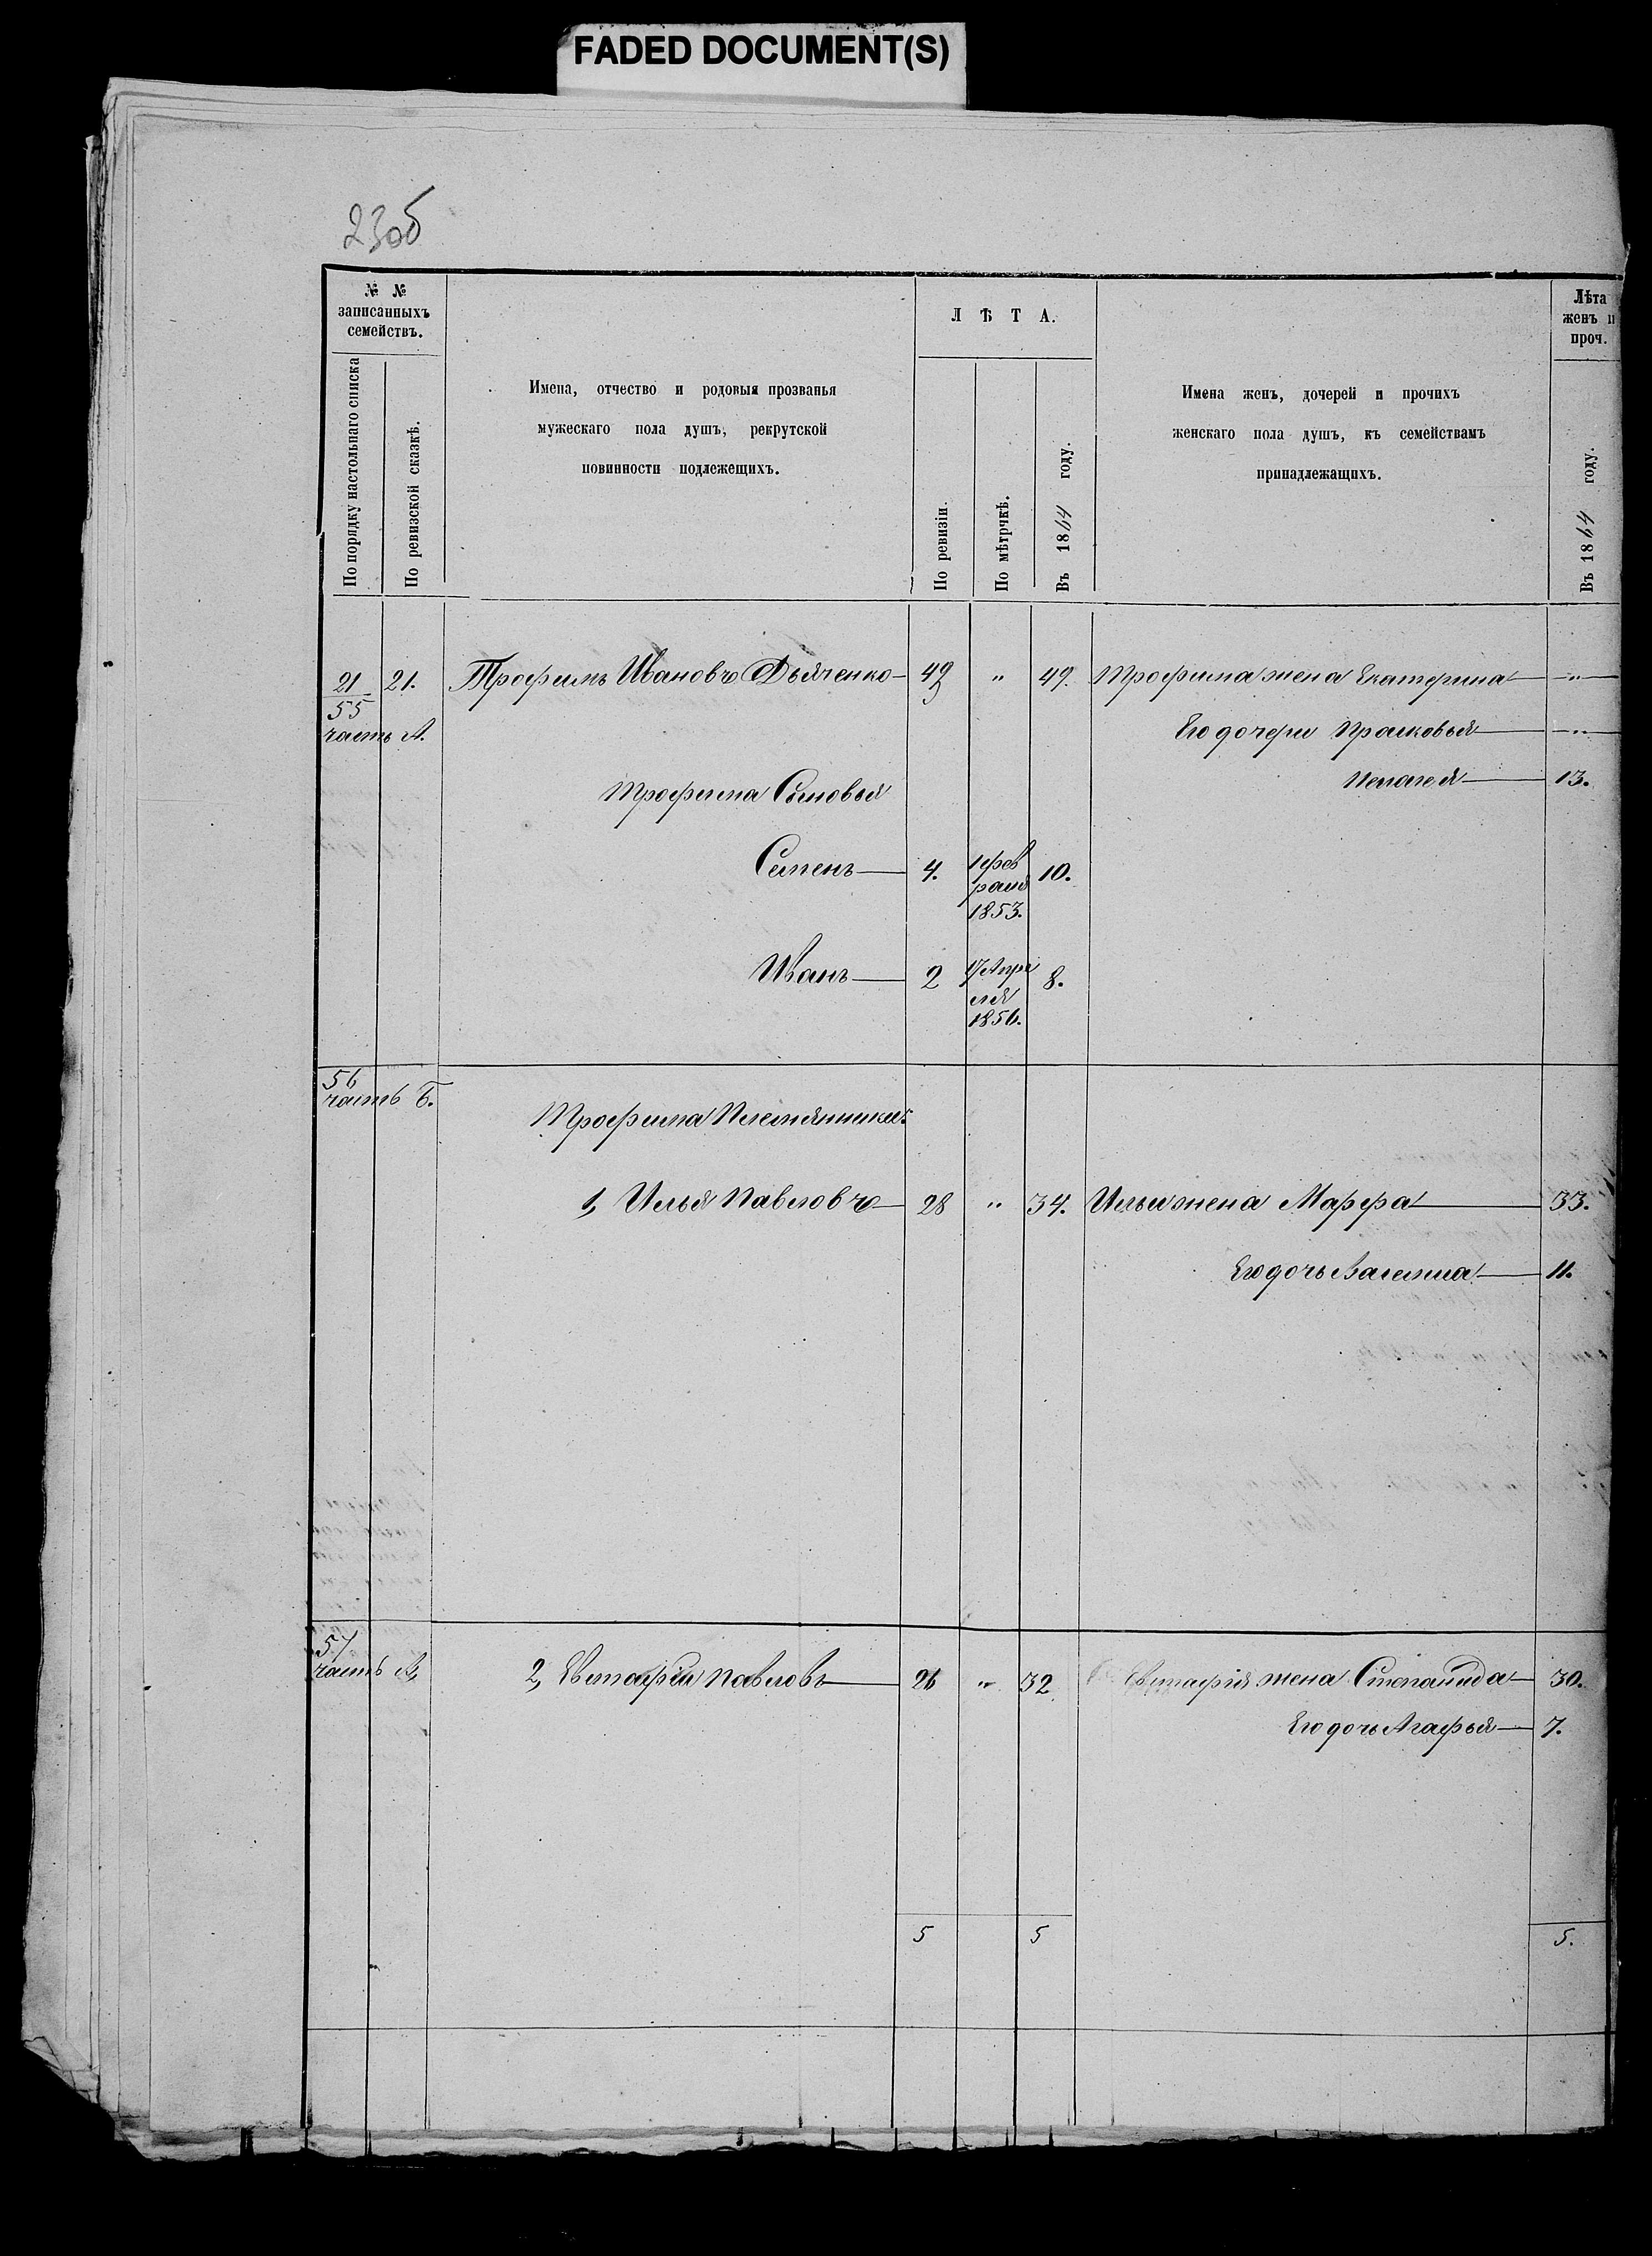 FADED DOCUMENT(S)
23об
№ №
записанныхъ
семействъ.
По порядку настольнаго списка
По ревизской сказкѣ.
Имена, отчество и родовыя прозванья
мужескаго пола душъ, рекрутской
повинности подлежещихъ.
ЛѢТА.
По ревизіи.
По мѣтрчкѣ.
Въ 1864 году.
Имена женъ, дочерей и прочихъ
женскаго пола душъ, къ семействамъ
принадлежащихъ.
Лѣта
женъ и
проч.
Въ 1864 году.
21 21. Трофимъ Ивановъ Дьяченко 49 " 49. Трофима жена Екатерина "
55
часть А.
Его дочери Прасковья "
Пелагея 13.
Трофима Сыновья
Семенъ 4. 1 фев 10.
раля
1853.
Иванъ 2 17 Апре 8.
ля
1856.
56
часть Б.
Трофима Племянники:
1, Илья Павловъ 28 " 34. Ильи жена Марфа 33.
Его дочь Васелиса 11.
57
часть В,
2, Евстафій Павловъ 26 " 32 Евстафія жена Степанида 30.
Его дочь Агафья 7.
5 5 5.